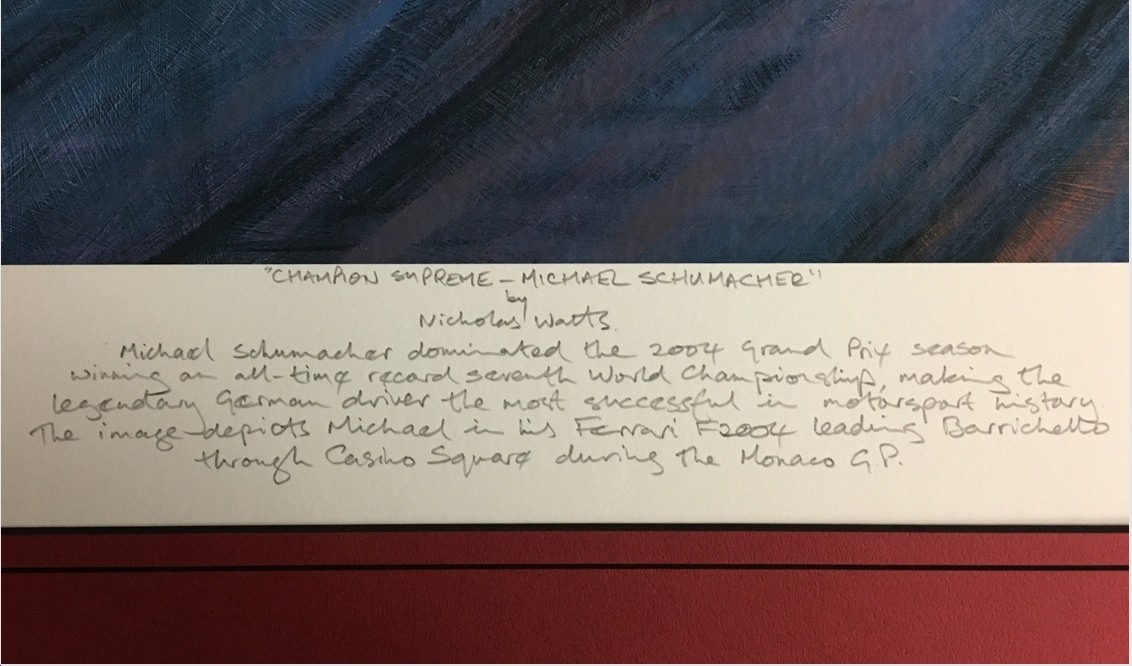 "CHAMPION SUPREME – MICHAEL SCHUMACHER"
by
Nicholas Watts.
Michael Schumacher dominated the 2004 Grand Prix season
winning an all-time record seventh World Championship, making the
legendary German driver the most successful in motorsport history.
The image depicts Michael in his Ferrari F2004 leading Barrichello
through Casino Square during the Monaco G.P.